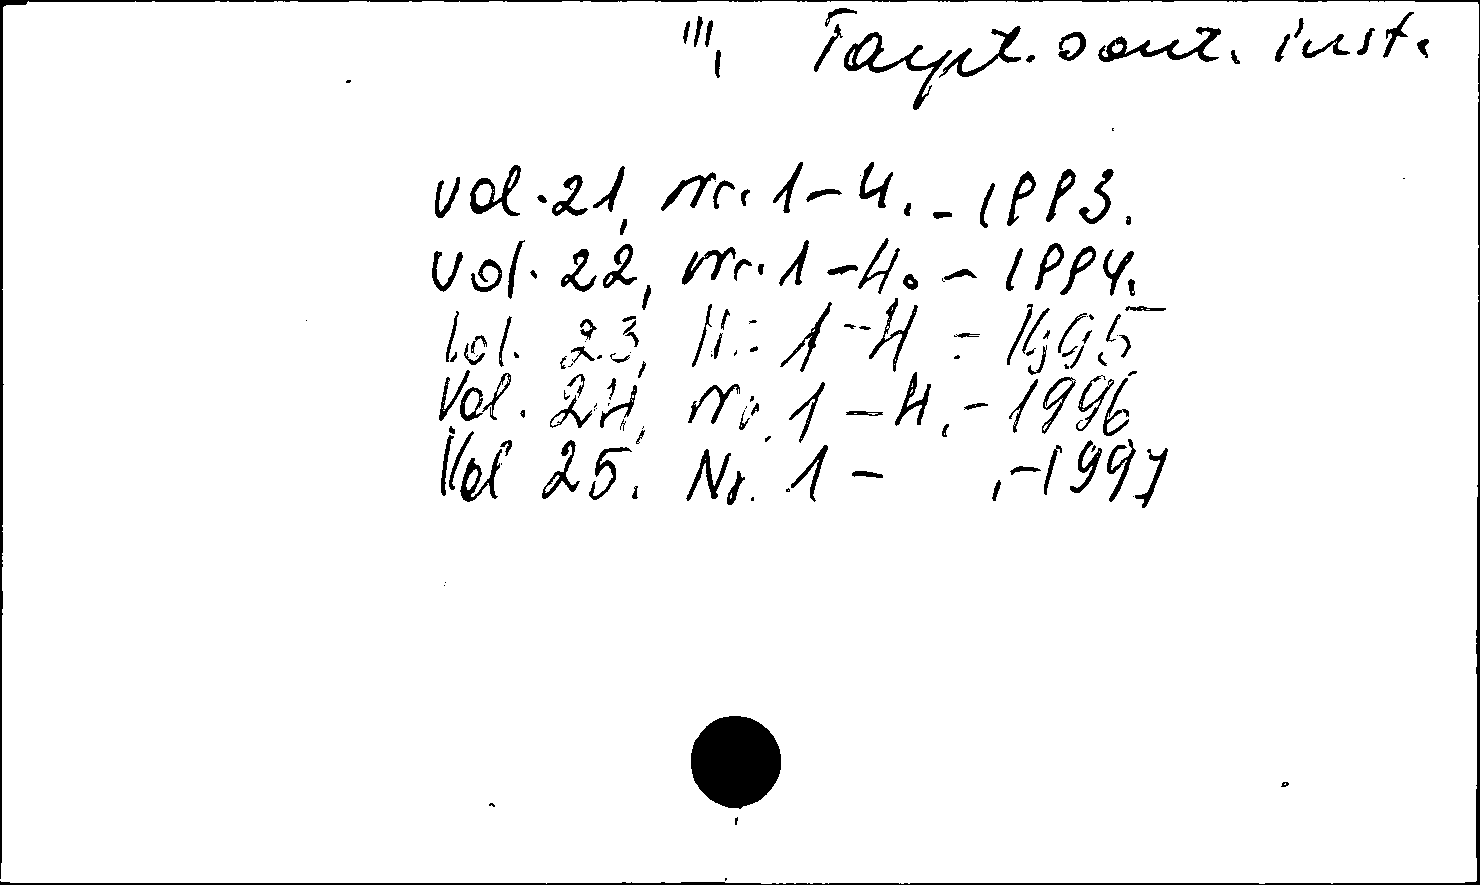 III,
vol. 21, nr. 1-4. - 1993.
vol. 22, nr. 1-4. - 1994.
Vol. 23, N: 1-4 - 1995
Vol. 24, Nr. 1-4. - 1996
Vol 25. Nr. 1 - , - 1997